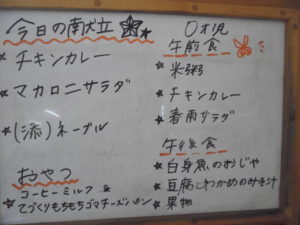 今日の献立
チキンカレー
マカロニサラダ
(添)ネーブル
おやつ
コーヒーミルク &
てづくりもちもちゴマチーズパン
0才児
午前食
米粥
チキンカレー
春雨サラダ
午後食
白身魚のおじや
豆腐とわかめのみそ汁
果物